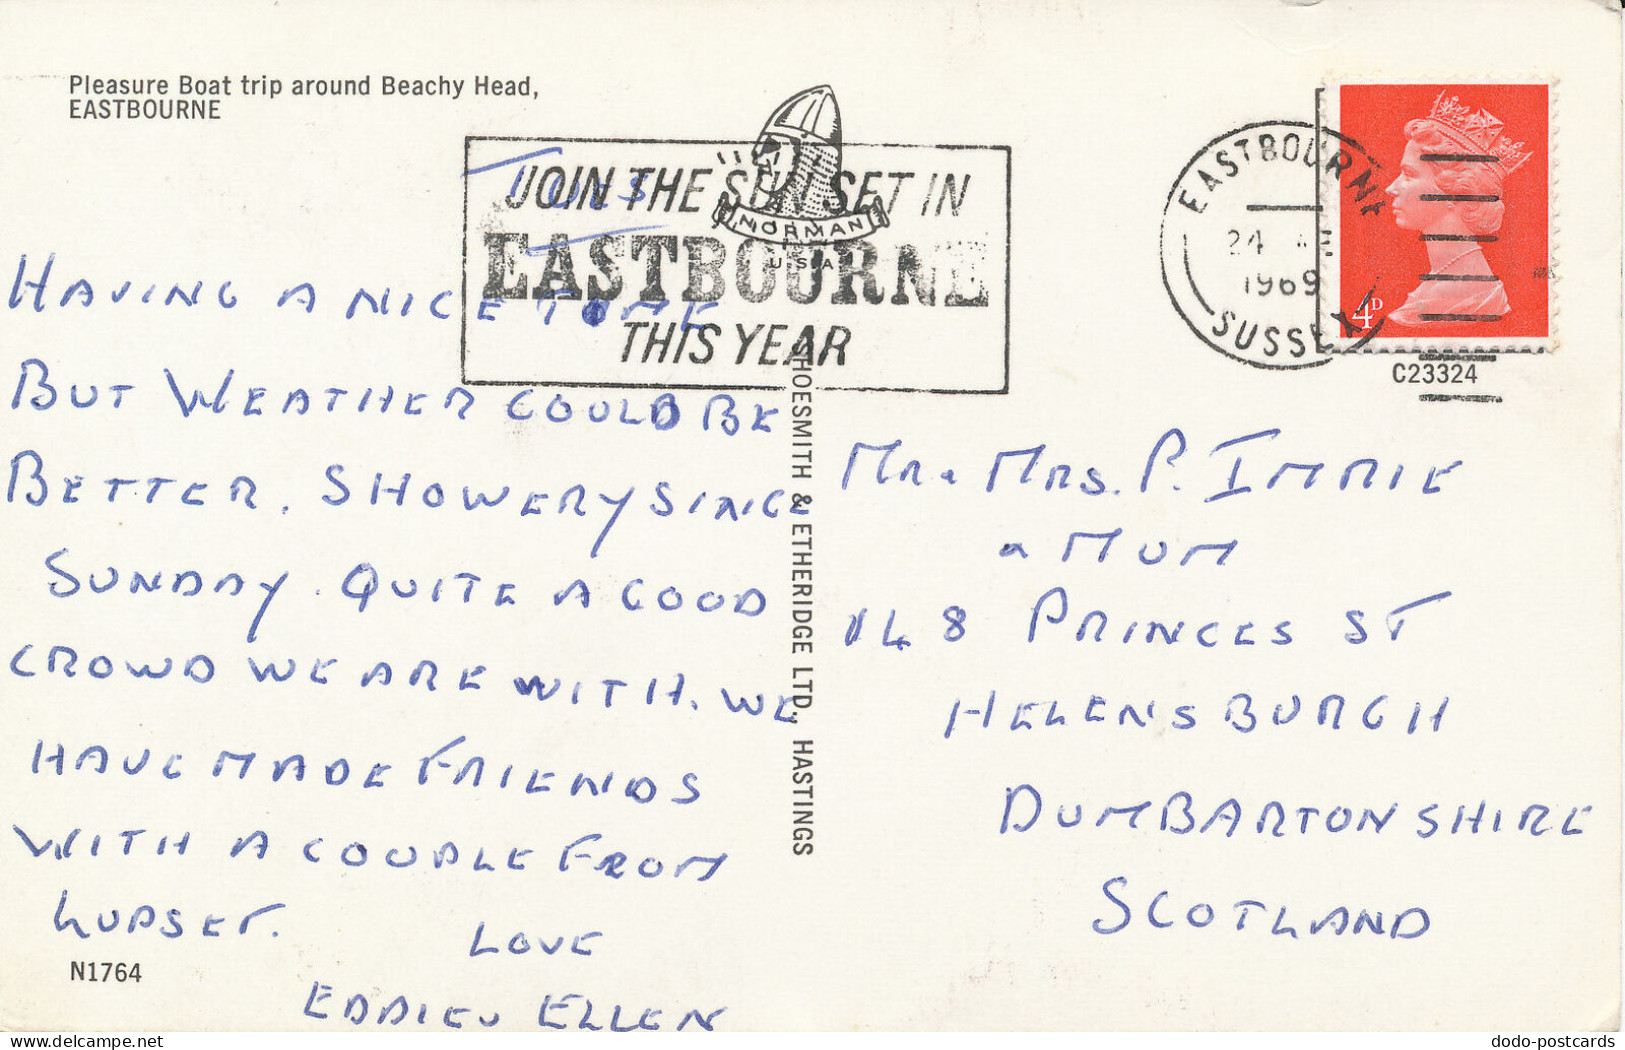 Pleasure Boat trip around Beachy Head,
EASTBOURNE
TUES
JOIN THE SUN SET IN
NORMAN
U.S.A
EASTBOURNE
THIS YEAR
EASTBOURNE
24
1969
SUSSEX
4D
C23324
HAVING A NICE TIME
BUT WEATHER COULD BE
BETTER. SHOWERY SINCE
SUNDAY. QUITE A GOOD
CROWD WE ARE WITH. WE
HAVE MADE FRIENDS
WITH A COUPLE FROM
LUPSET.
LOVE
EDDIE & ELLEN
N1764
SHOESMITH & ETHERIDGE LTD., HASTINGS
MR & MRS. P. IMRIE
& MUM
148 PRINCES ST
HELENSBURGH
DUMBARTONSHIRE
SCOTLAND
delcampe.net
dodo-postcards